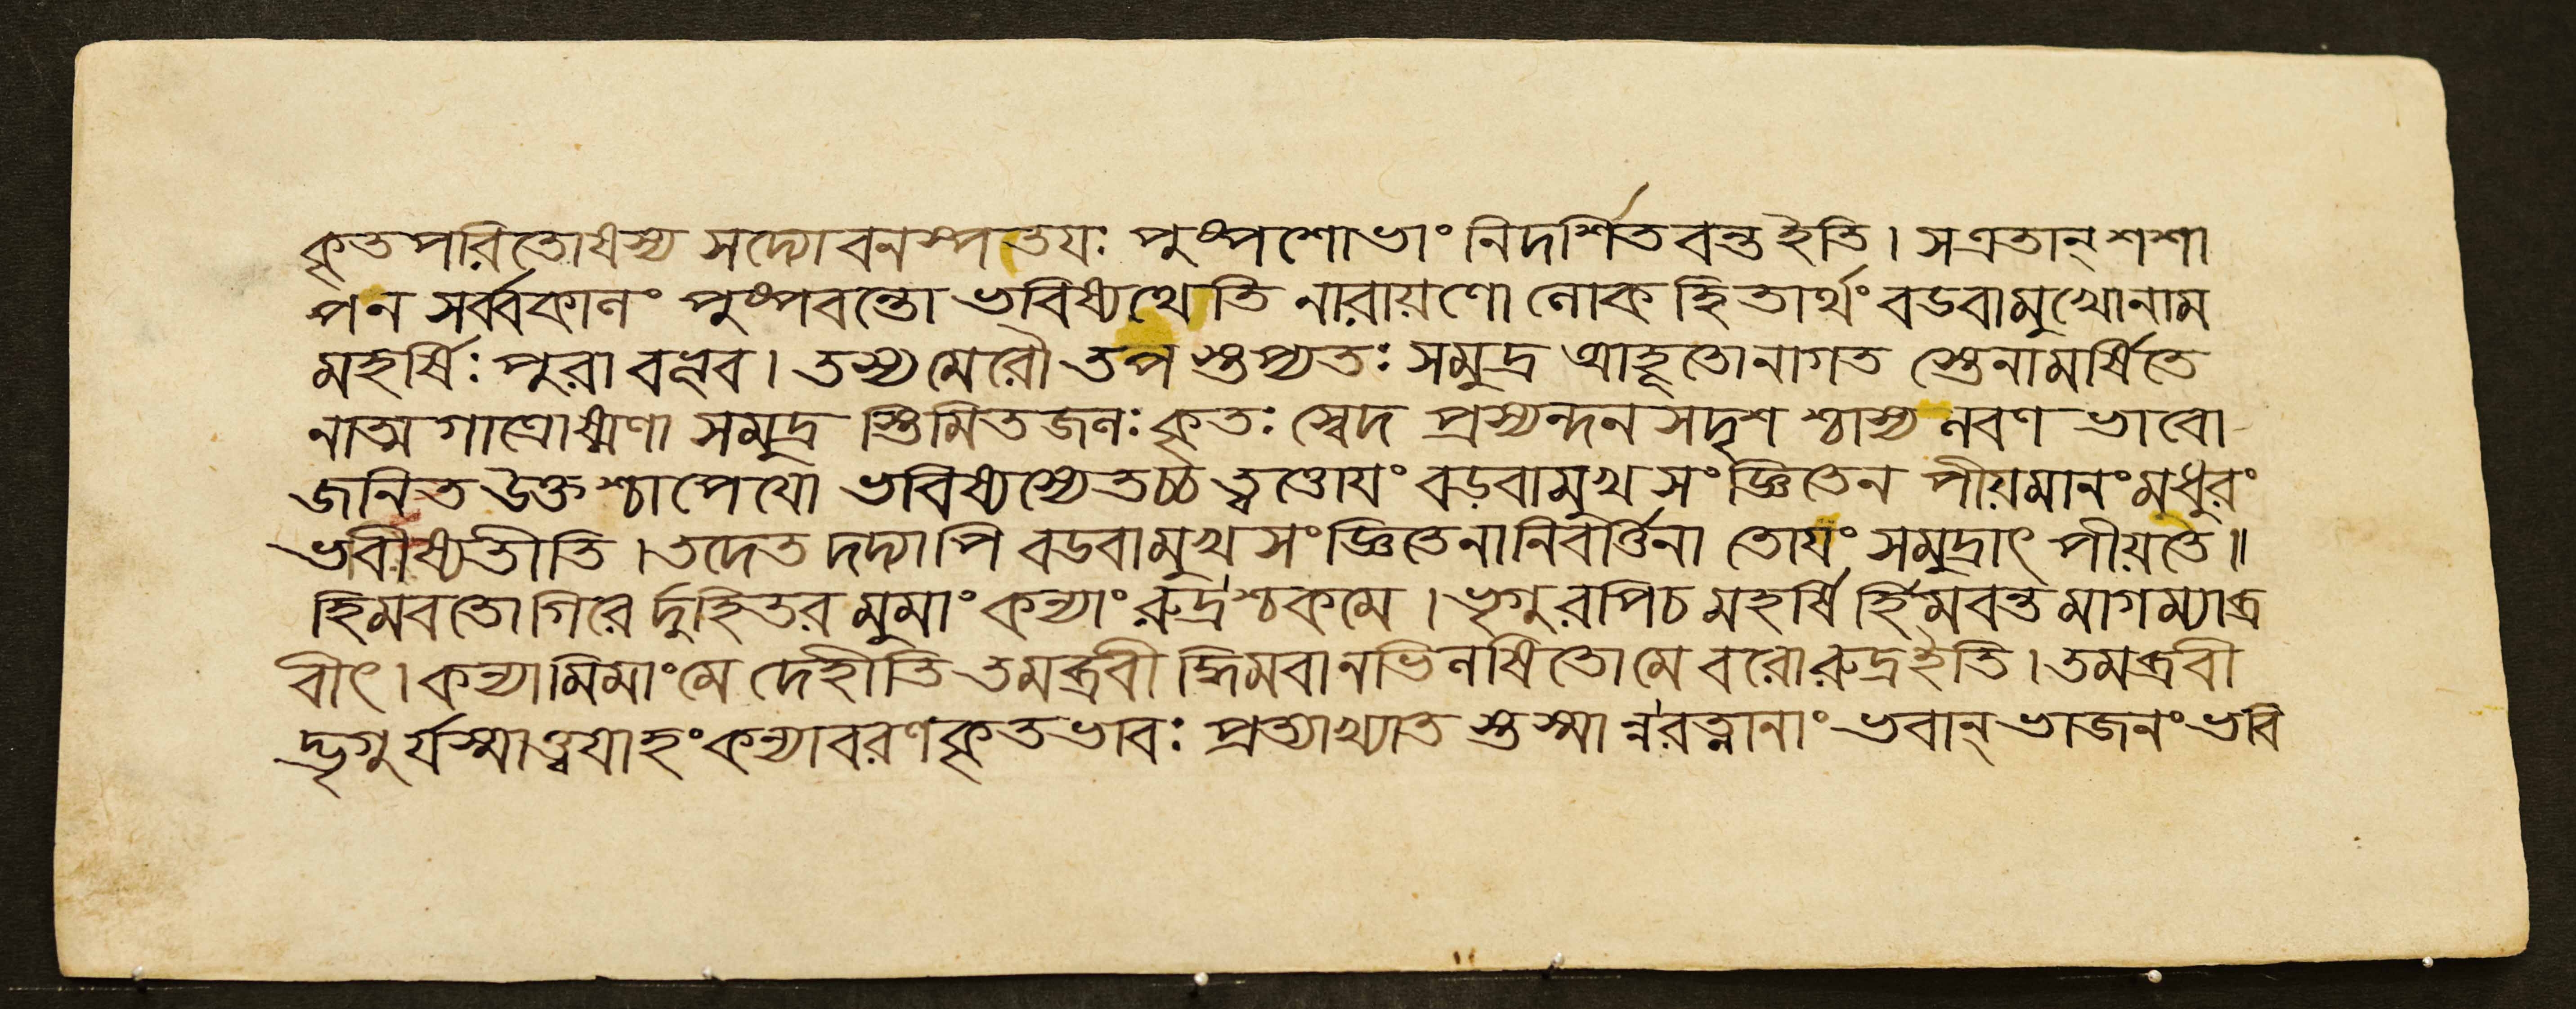 কৃতপরিতোষস্য সদ্যো বনস্পতয়ঃ পুষ্পশোভাং নিদর্শিতবন্ত ইতি । স এতান্ শশা
পন সর্ব্বকানং পুষ্পবন্তো ভবিষ্যথেতি নারায়ণো লোকহিতার্থং বডবামুখো নাম
মহর্ষিঃ পুরা বভূব । তস্য মেরৌ তপ স্তপ্যতঃ সমুদ্র আহূতো নাগত স্তেনামর্ষিতে
নাত্ম গাত্রোষ্মণা সমুদ্র স্তিমিতজলঃ কৃতঃ স্বেদ প্রস্যন্দন সদৃশ শ্চাস্য লবণ ভাবো
জনিত উক্ত শ্চাপেয়ো ভবিষ্যস্যেতচ্চ ত্বত্তোয়ং বড়বামুখ সংজ্ঞিতেন পীয়মানং মধুরং
ভবীষ্যতীতি । তদেত দদ্যাপি বডবামুখ সংজ্ঞিতেনানিবর্ত্তিনা তোয়ং সমুদ্রাৎ পীয়তে ॥
হিমবতো গিরে র্দুহিতর মুমাং কন্যাং রুদ্র শ্চকমে । ভৃগুরপিচ মহর্ষি র্হিমবন্ত মাগম্যাব্র
বীৎ । কন্যামিমাং মে দেহীতি তমব্রবী দ্ধিমবানভিলষিতো মে বরো রুদ্র ইতি । তমব্রবী
দ্ভৃগু র্যস্মাত্ত্বয়াহং কন্যাবরণ কৃতভাবঃ প্রত্যাখ্যাত স্তস্মা ন্নরত্নানাং ভবান্ ভাজনং ভবি